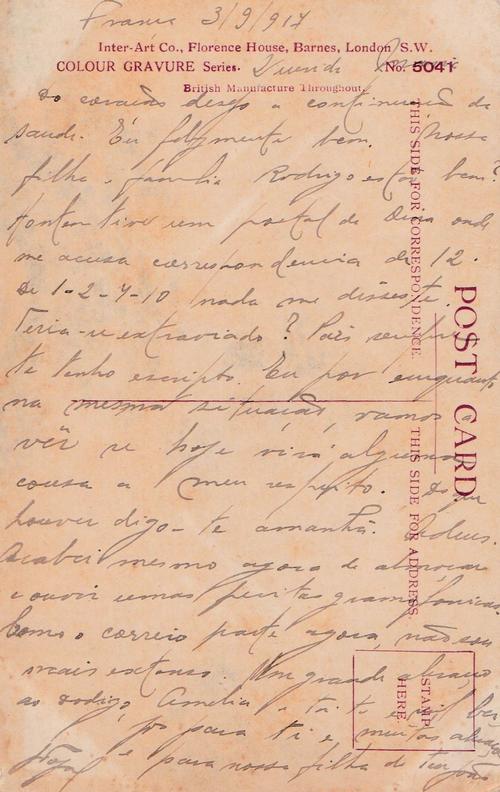 França 3/9/917
Inter-Art Co., Florence House, Barnes, London S.W.
COLOUR GRAVURE Series. No. 5041
Querida
British Manufacture Throughout.
Do coração desejo a continuação de
saude. Eu felizmente bem. Nossa
filha e familia Rodrigo estão bem?
Hontem tive um postal de onde
me acusa correspondencia de 12.
De 1-2-4-10 nada me disseste.
Teria-se extraviado? Pois sempre
te tenho escripto. Eu por emquanto
na mesma situação, vamos a
vêr se hoje virá alguma
cousa a meu respeito. Do que
houver digo-te amanhã. Adeus.
Acabei mesmo agora de almoçar
e ouvir umas gramofonicas
Como o correio parte agora, não sou
mais extenso. Um grande abraço
ao Rodrigo, Amelia e
para ti e muitos
e para nossa filha do teu João
POST CARD
THIS SIDE FOR CORRESPONDENCE.
THIS SIDE FOR ADDRESS
STAMP
HERE